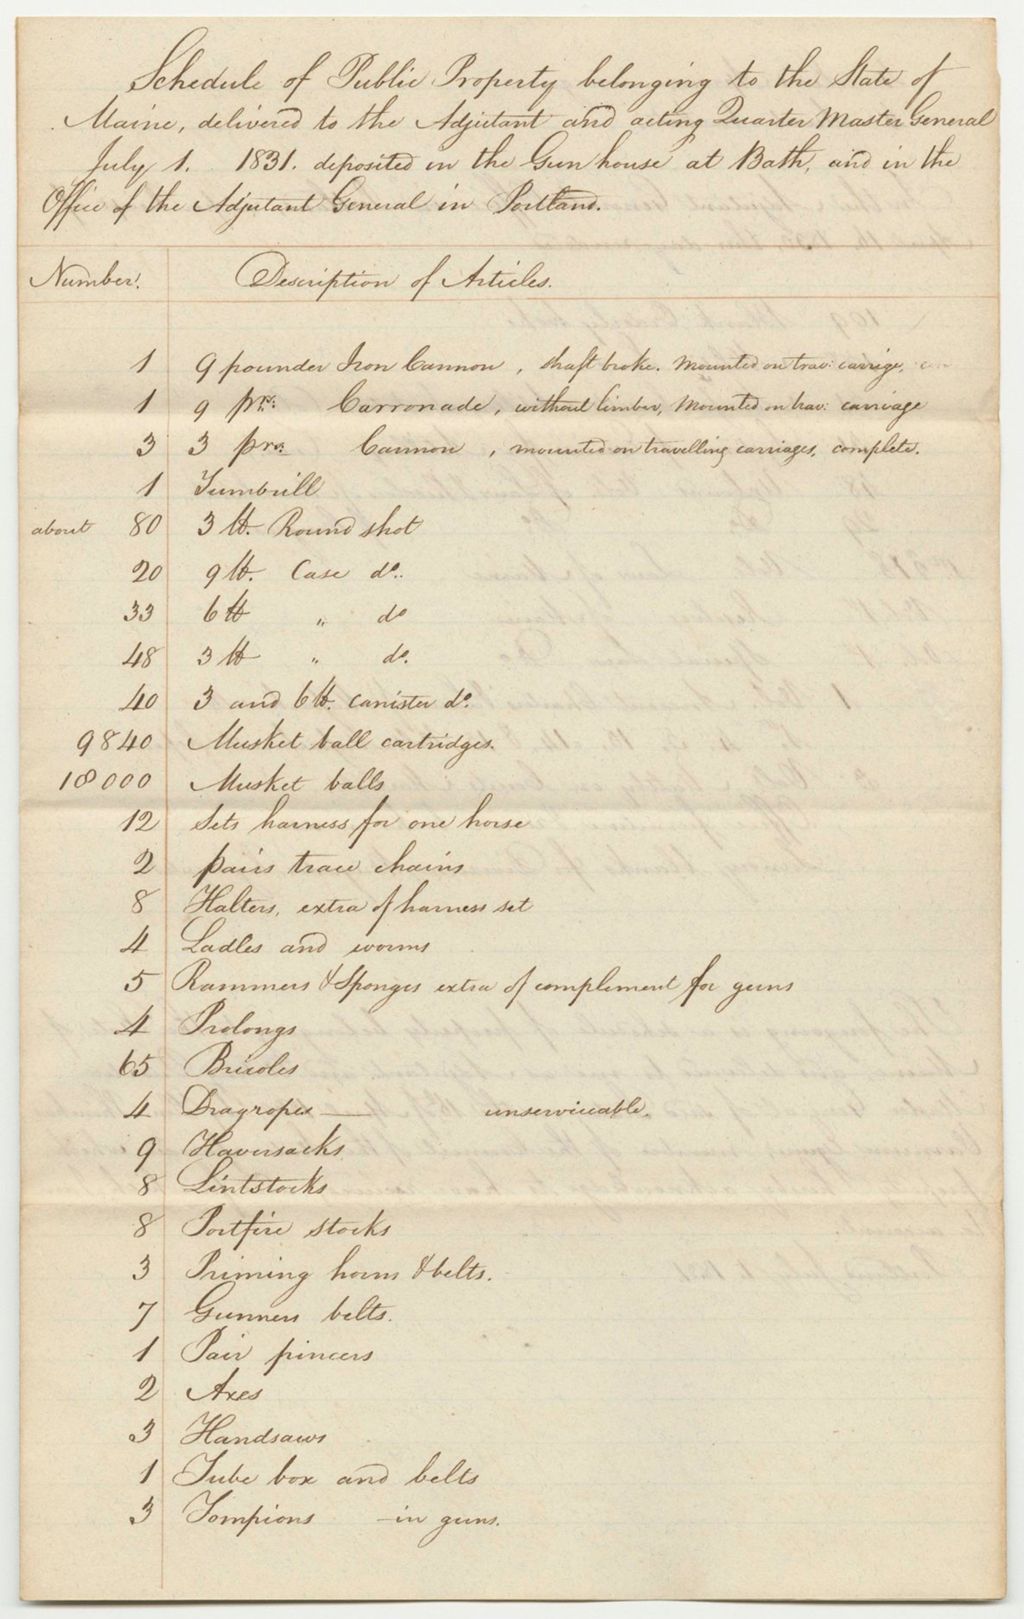 Schedule of Public Property belonging to the State of
Maine, delivered to the Adjutant and acting Quarter Master General
July 1. 1831. deposited in the Gun house at Bath, and in the
Office of the Adjutant General in Portland.
Number. Description of Articles.
1 9 pounder Iron Cannon, shaft broke. Mounted on trav: carrige,
1 9 pr. Carronade, without limber, Mounted on trav: carriage
3 3 prs. Cannon, mounted on travelling carriages, complete.
1 Tumbrill
about 80 3 lb. Round shot
20 9 lb. Case do.
33 6 lb " do
48 3 lb " do.
40 3 and 6 lb. canister do.
9840 Musket ball cartridges.
18000 Musket balls
12 Sets harness for one horse
2 pairs trace chains
8 Halters, extra of harness set
4 Ladles and worms
5 Rammers & Sponges extra of complement for guns
4 Prolongs
65 Bricoles
4 Dragropes — unserviceable.
9 Haversacks
8 Lintstocks
8 Portfire stocks
3 Priming horns & belts.
7 Gunners belts.
1 Pair pincers
2 Axes
3 Handsaws
1 Tube box and belts
3 Tompions - in guns.